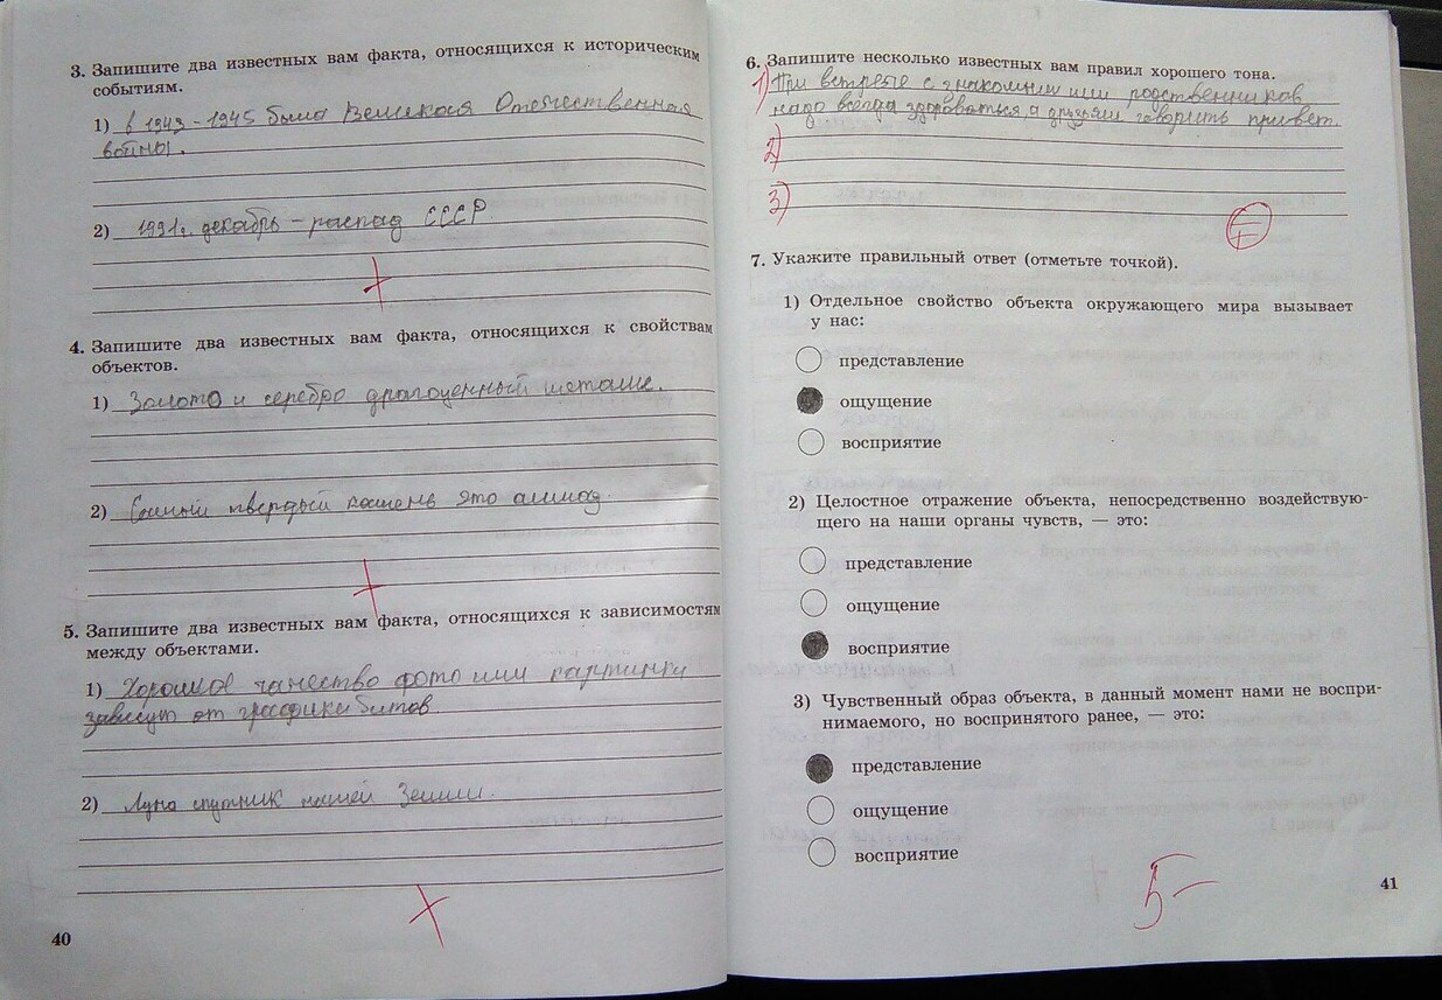 3. Запишите два известных вам факта, относящихся к историческим
событиям.
1) в 1943-1945 была Великая Отечественная
войны.
2) 1991г. декабрь – распад СССР.
4. Запишите два известных вам факта, относящихся к свойствам
объектов.
1) Золото и серебро драгоценный металле.
2) Самый твердый камень это алмаз.
5. Запишите два известных вам факта, относящихся к зависимостям
между объектами.
1) Хорошое качество фото или картинки
зависут от графики битов.
2) Луна спутник нашей Земли.
40
6. Запишите несколько известных вам правил хорошего тона.
1) При встрече с знакомым или родственников
надо всегда здороваться, а друзьям говорить привет.
2)
3)
7. Укажите правильный ответ (отметьте точкой).
1) Отдельное свойство объекта окружающего мира вызывает
у нас:
представление
ощущение
восприятие
2) Целостное отражение объекта, непосредственно воздействую-
щего на наши органы чувств, — это:
представление
ощущение
восприятие
3) Чувственный образ объекта, в данный момент нами не воспри-
нимаемого, но воспринятого ранее, — это:
представление
ощущение
восприятие
5-
41